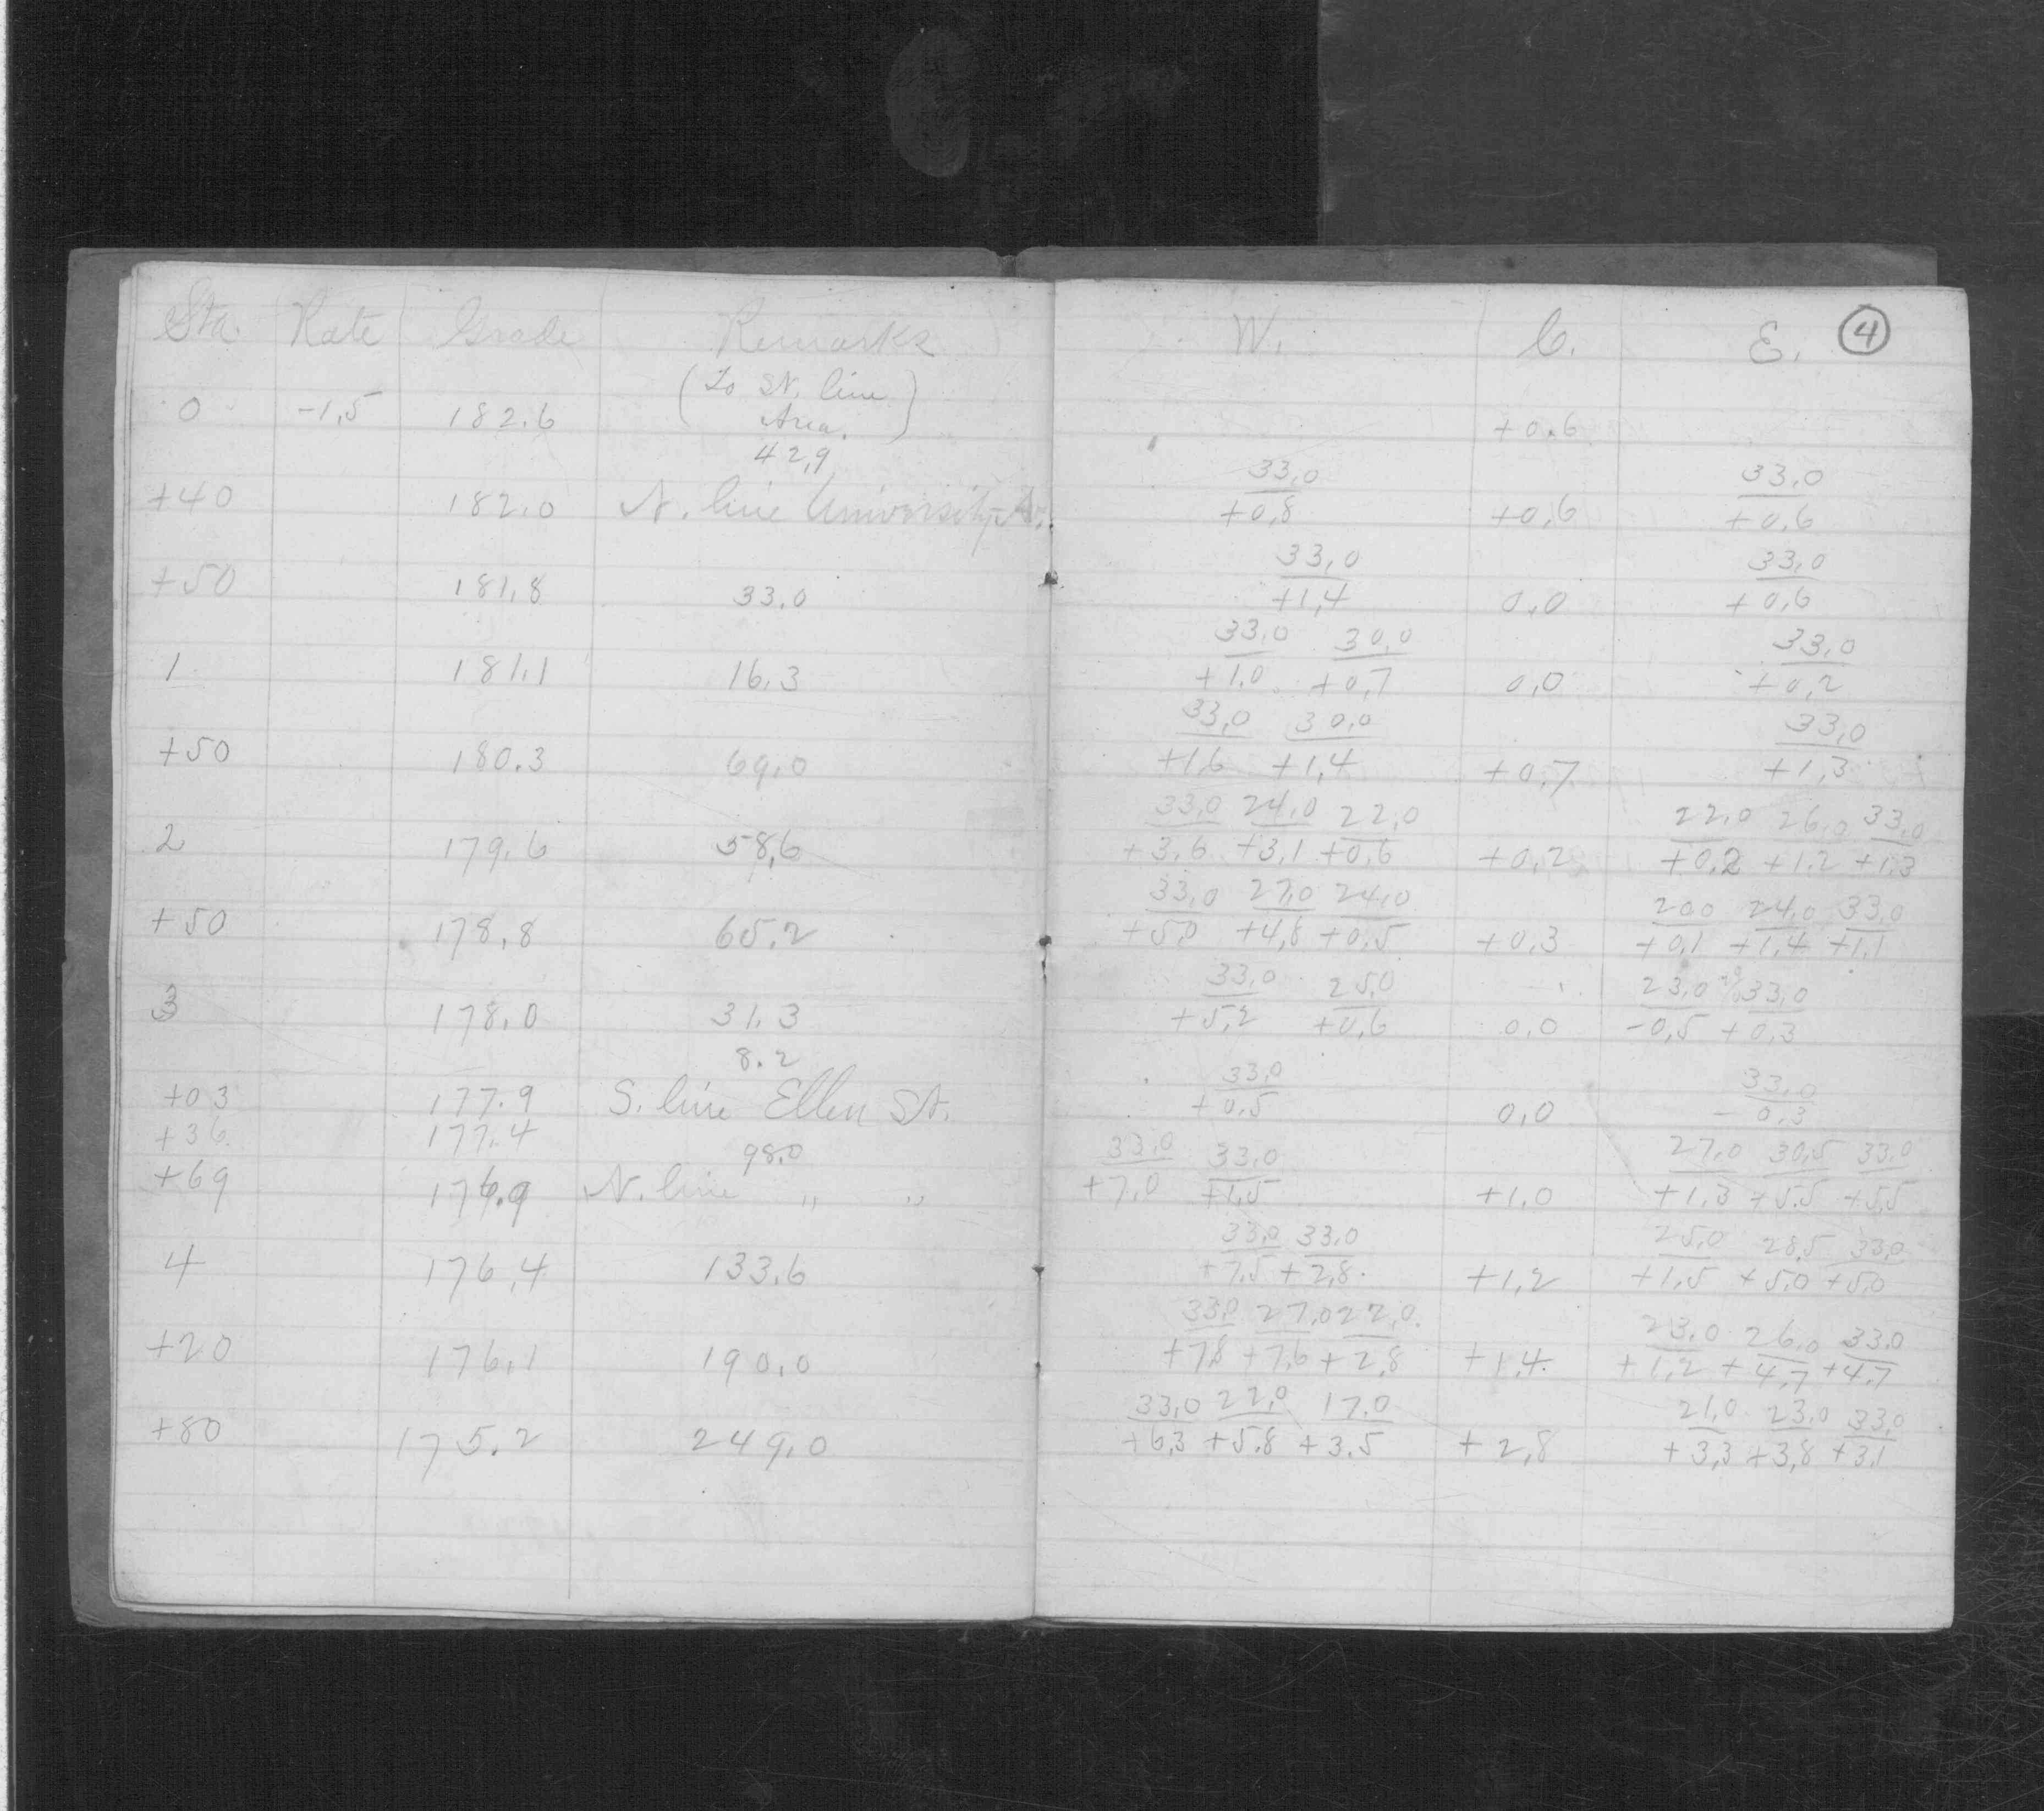 Sta. Rate Grade Remarks W. C. E. 4
(To St. line
0 -1,5 182.6 Area.) +0.6
42,9 33,0 33,0
+40 182.0 N. line University Av. +0,8 +0,6 +0,6
33,0 33,0
+50 181,8 33,0 +1,4 0,0 +0,6
33,0 30,0 33,0
1 181,1 16,3 +1,0 +0,7 0,0 +0,2
33,0 30,0 33,0
+50 180.3 69,0 +1,6 +1,4 +0,7 +1,3
33,0 24,0 22,0 22,0 26,0 33,0
2 179,6 58,6 +3,6 +3,1 +0,6 +0,2 +0,2 +1.2 +1,3
33,0 27,0 24,0 20,0 24,0 33,0
+50 178,8 65,2 +5,0 +4,8 +0,5 +0,3 +0,1 +1,4 +1,1
33,0 25,0 23,0 33,0
3 178,0 31,3 +5,2 +0,6 0,0 -0,5 +0,3
8.2 33,0 33,0
+03 177.9 S. line Ellen St. +0,5 0,0 -0,3
+36 177.4
98,0 33,0 33,0 27,0 30,5 33,0
+69 176.9 N. line " " +7,0 +1,5 +1,0 +1,3 +5.5 +5,5
33,0 33,0 25,0 28,5 33,0
4 176,4 133,6 +7,5 +2,8 +1,2 +1,5 +5,0 +5,0
33,0 27,0 22,0 23,0 26,0 33,0
+20 176,1 190,0 +7,8 +7,6 +2,8 +1,4 +1,2 +4,7 +4,7
33,0 22,0 17.0 21,0 23,0 33,0
+80 175.2 249,0 +6,3 +5.8 +3.5 +2,8 +3,3 +3,8 +3,1